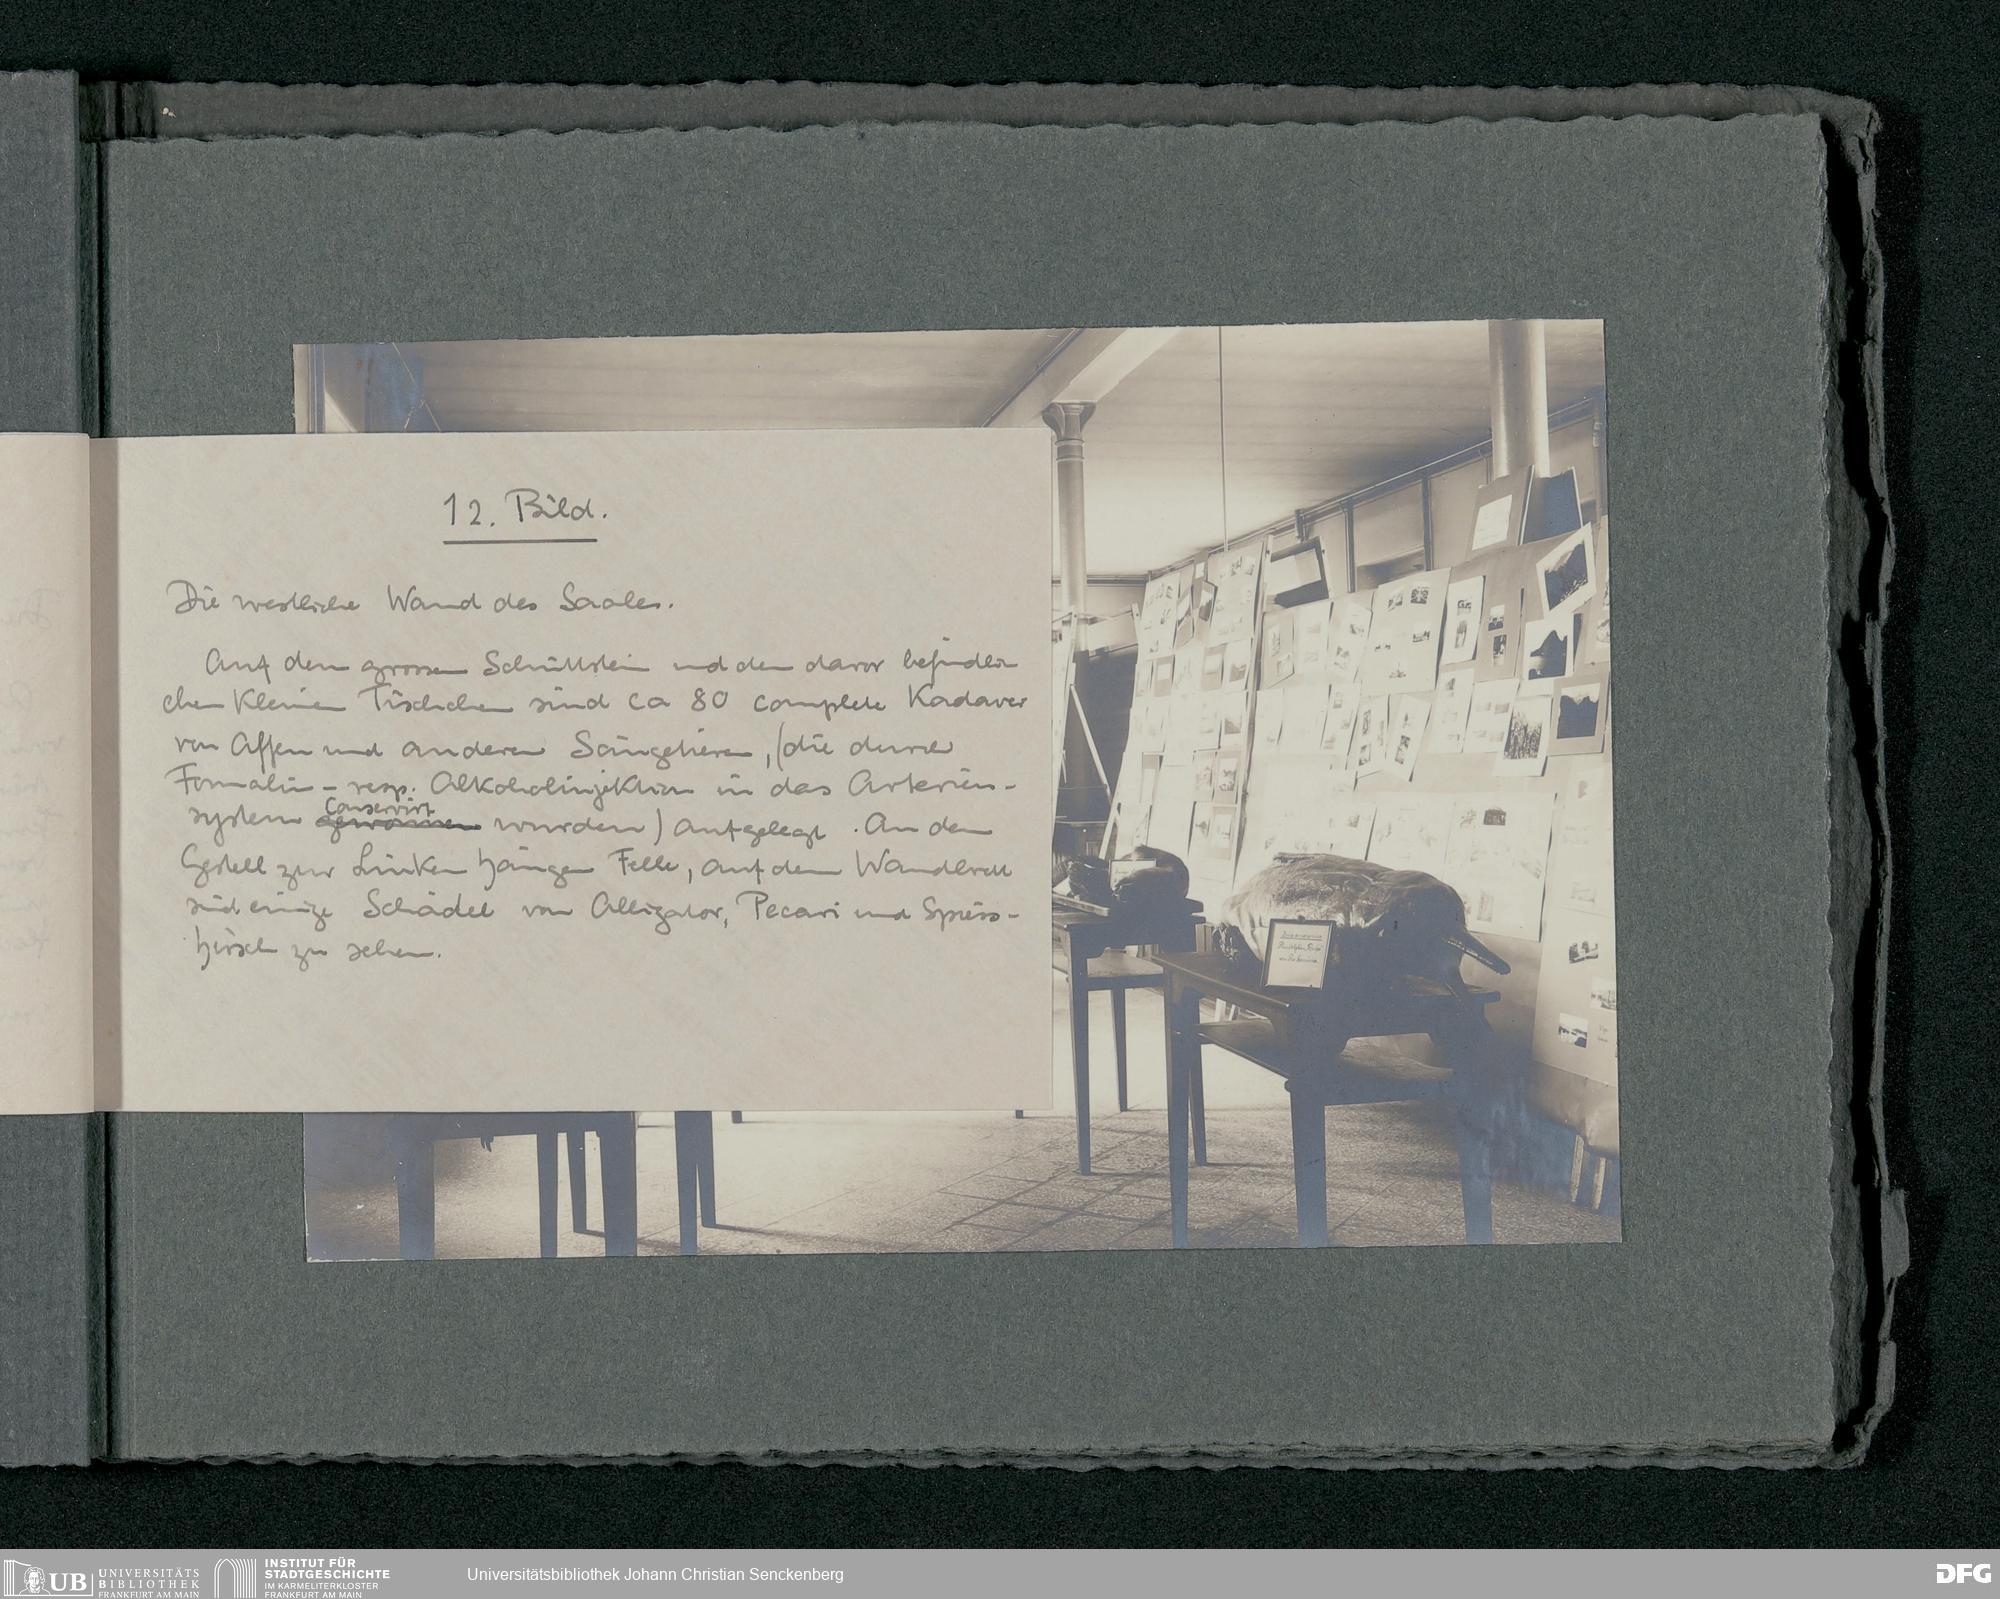 12. Bild.
Die westliche Wand des Saales.
Auf dem grossen Schüttstein und den davor befindli
chen kleinen Tischchen sind ca 80 complete Kadaver
von Affen und anderen Säugetieren, (die durch
Formalin- resp. Alkoholinjektion in das Arterien-
system conservirt wurden) aufgelegt. An dem
Gestell zur Linken hängen Felle, auf dem Wandbrett
sind einige Schädel von Alligator, Pecari und Spiess-
hirsch zu sehen.
UB UNIVERSITÄTS
BIBLIOTHEK
FRANKFURT AM MAIN
INSTITUT FÜR
STADTGESCHICHTE
IM KARMELITERKLOSTER
FRANKFURT AM MAIN
Universitätsbibliothek Johann Christian Senckenberg
DFG